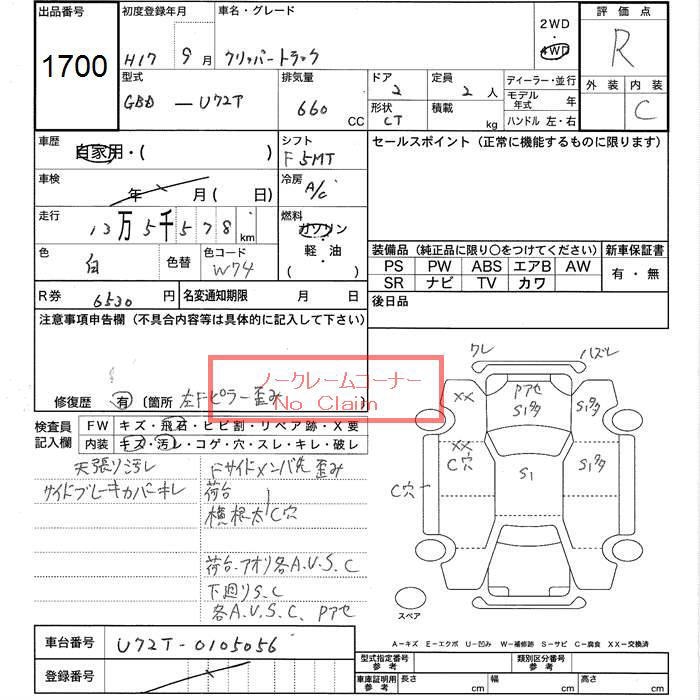 出品番号 初度登録年月 車名・グレード 2WD 評価点
1700 H17 9月 クリッパートラック 4WD R
型式 排気量 ドア 定員 ディーラー・並行 外装 内装
GBD-U72T 660 CC 2 2人 モデル年式 年 C
形状 CT 積載 kg ハンドル 左・右
車歴 自家用・( ) シフト F5MT セールスポイント(正常に機能するものに限ります)
車検 年 月( 日) 冷房 A/C
走行 13万5千578km 燃料 ガソリン
軽・油
( )
色 白 色替 色コード W74
装備品(純正品に限り○をつけてください) 新車保証書
PS PW ABS エアB AW 有・無
SR ナビ TV カワ
R券 6530円 名変通知期限 月 日 後日品
注意事項申告欄(不具合内容等は具体的に記入して下さい)
ノークレームコーナー
No Claim
修復歴 有 〔箇所 左Fピラー歪み
検査員記入欄 FW キズ・飛石・ヒビ割・リペア跡・X要
内装 キズ・汚レ・コゲ・穴・スレ・キレ・破レ
天張り汚レ Fサイドメンバ先歪み
サイドブレーキカバーキレ 荷台
横根太C穴
荷台.アオリ各A.U.S.C
下廻りS.C
各A.U.S.C、Pアセ
クレ ハズレ
XX Pアセ
S1
XX
C穴 S1
C穴
スペア
A-キズ E-エクボ U-凹み W-補修跡 S-サビ C-腐食 XX-交換済
車台番号 U72T-0105056
登録番号
型式指定番号 参考 類別区分番号 参考
車庫証明用 参考 長さ cm 幅 cm 高さ cm